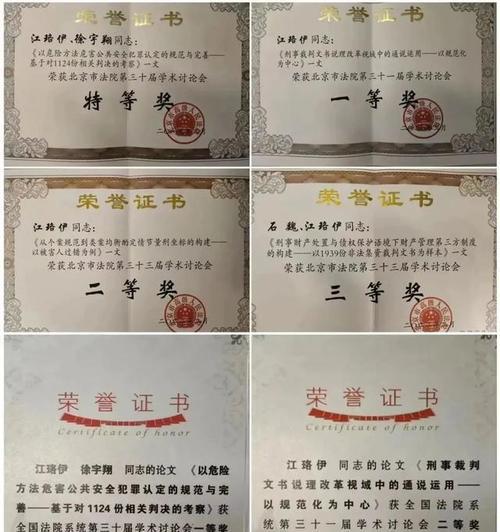 荣誉证书
江珞伊、徐宇翔同志:
《以危险方法危害公共安全犯罪认定的规范与完善——
基于对1124份相关判决的考察》一文
荣获北京市法院第三十届学术讨论会
特等奖
荣誉证书
江珞伊同志:
《刑事裁判文书说理改革视域中的通说运用——以规范化
为中心》一文
荣获北京市法院第三十一届学术讨论会
一等奖
荣誉证书
江珞伊同志:
《从个案规范到类案均衡酌定情节量刑坐标的构建——
以被害人过错为例》一文
荣获北京市法院第三十三届学术讨论会
二等奖
荣誉证书
石魏、江珞伊同志:
《刑事财产处置与债权保护语境下财产管理第三方制度
的构建——以1939份非法集资裁判文书为样本》一文
荣获北京市法院第三十三届学术讨论会
三等奖
荣誉证书
Certificate of honor
江珞伊 徐宇翔 同志的论文 《以危险
方法危害公共安全犯罪认定的规范与完
善——基于对1124份相关判决的考察》获
全国法院系统第三十届学术讨论会一等奖
荣誉证书
Certificate of honor
江珞伊 同志的论文 《刑事裁判
文书说理改革视域中的通说运用——
以规范化为中心》 获全国法院系
统第三十一届学术讨论会 二等奖